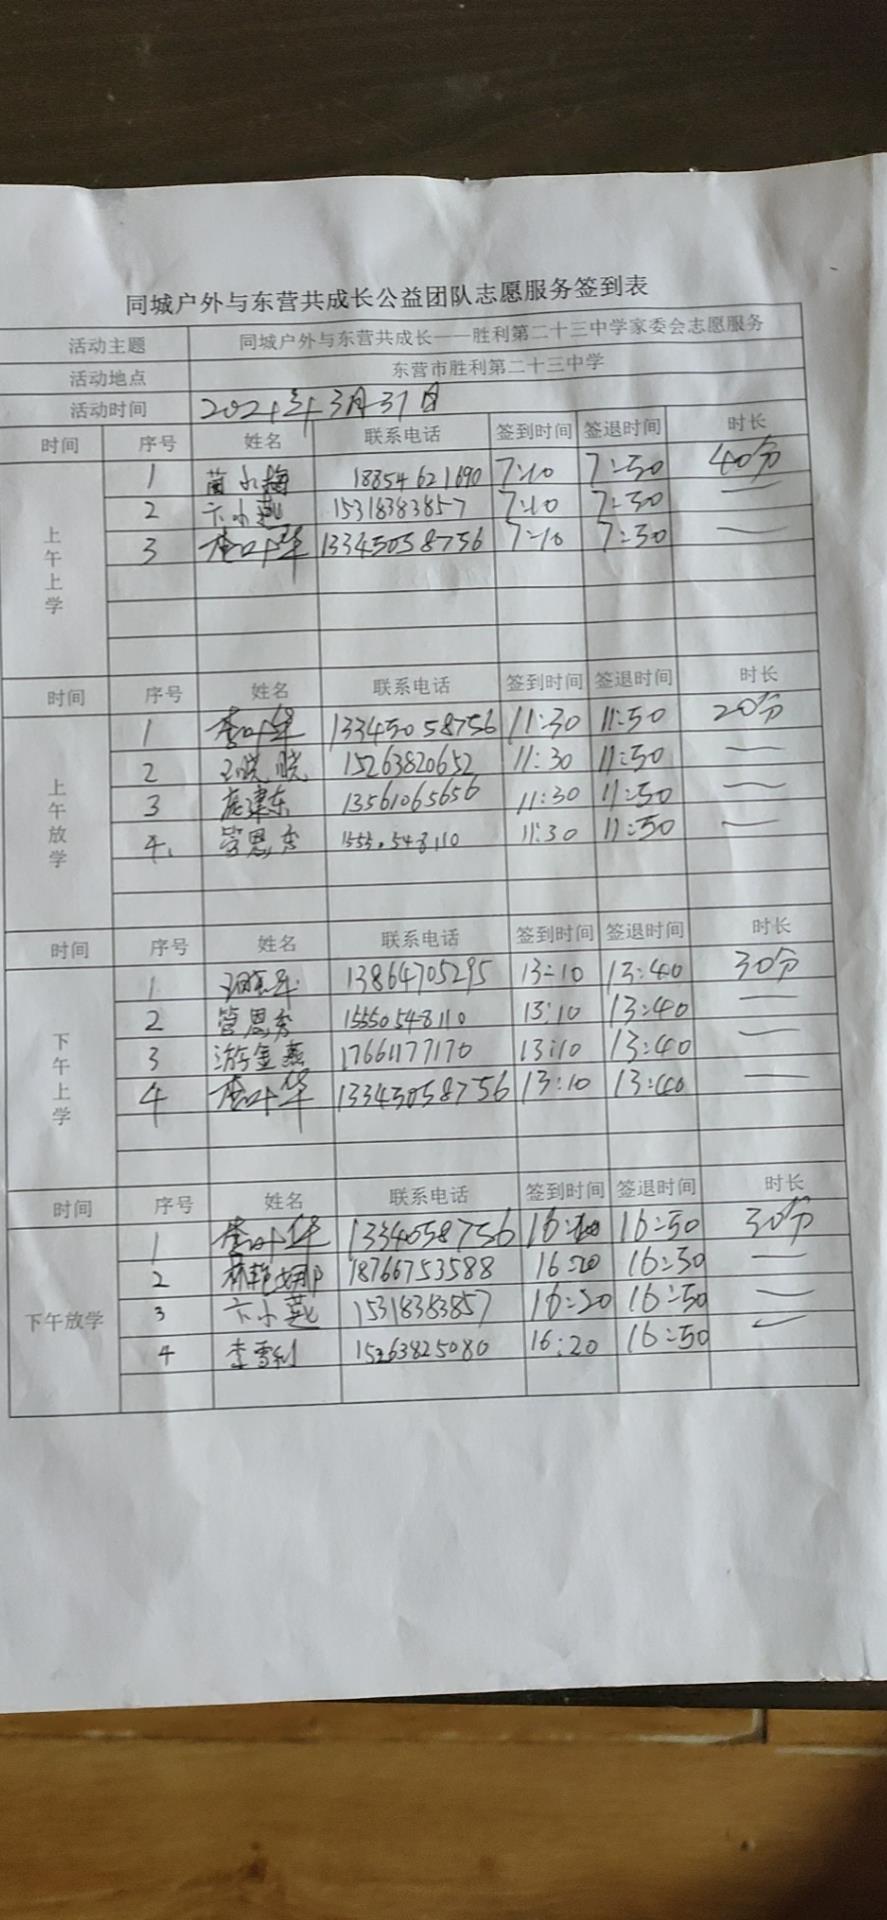 同城户外与东营共成长公益团队志愿服务签到表
活动主题 同城户外与东营共成长——胜利第二十三中学家委会志愿服务
活动地点 东营市胜利第二十三中学
活动时间 2021年3月31日
时间 序号 姓名 联系电话 签到时间 签退时间 时长
上午上学
1 18854621690 7:10 7:50 40分
2 卞小燕 15318383857 7:10 7:50 —
3 13345058756 7:10 7:50 —
时间 序号 姓名 联系电话 签到时间 签退时间 时长
上午放学
1 13345058756 11:30 11:50 20分
2 王晓晓 15263820652 11:30 11:50 —
3 庞建东 13561065656 11:30 11:50 —
4. 管恩秀 11:30 11:50 —
时间 序号 姓名 联系电话 签到时间 签退时间 时长
下午上学
1 13864705295 13:10 13:40 30分
2 管恩秀 15550548110 13:10 13:40 —
3 游金燕 17661177170 13:10 13:40 —
4 13345058756 13:10 13:40 —
时间 序号 姓名 联系电话 签到时间 签退时间 时长
下午放学
1 1334058756 16:50 30分
2 18766753588 16:20 16:50 —
3 卞小燕 15318383857 16:20 16:50 —
4 李雪利 15263825080 16:20 16:50 —